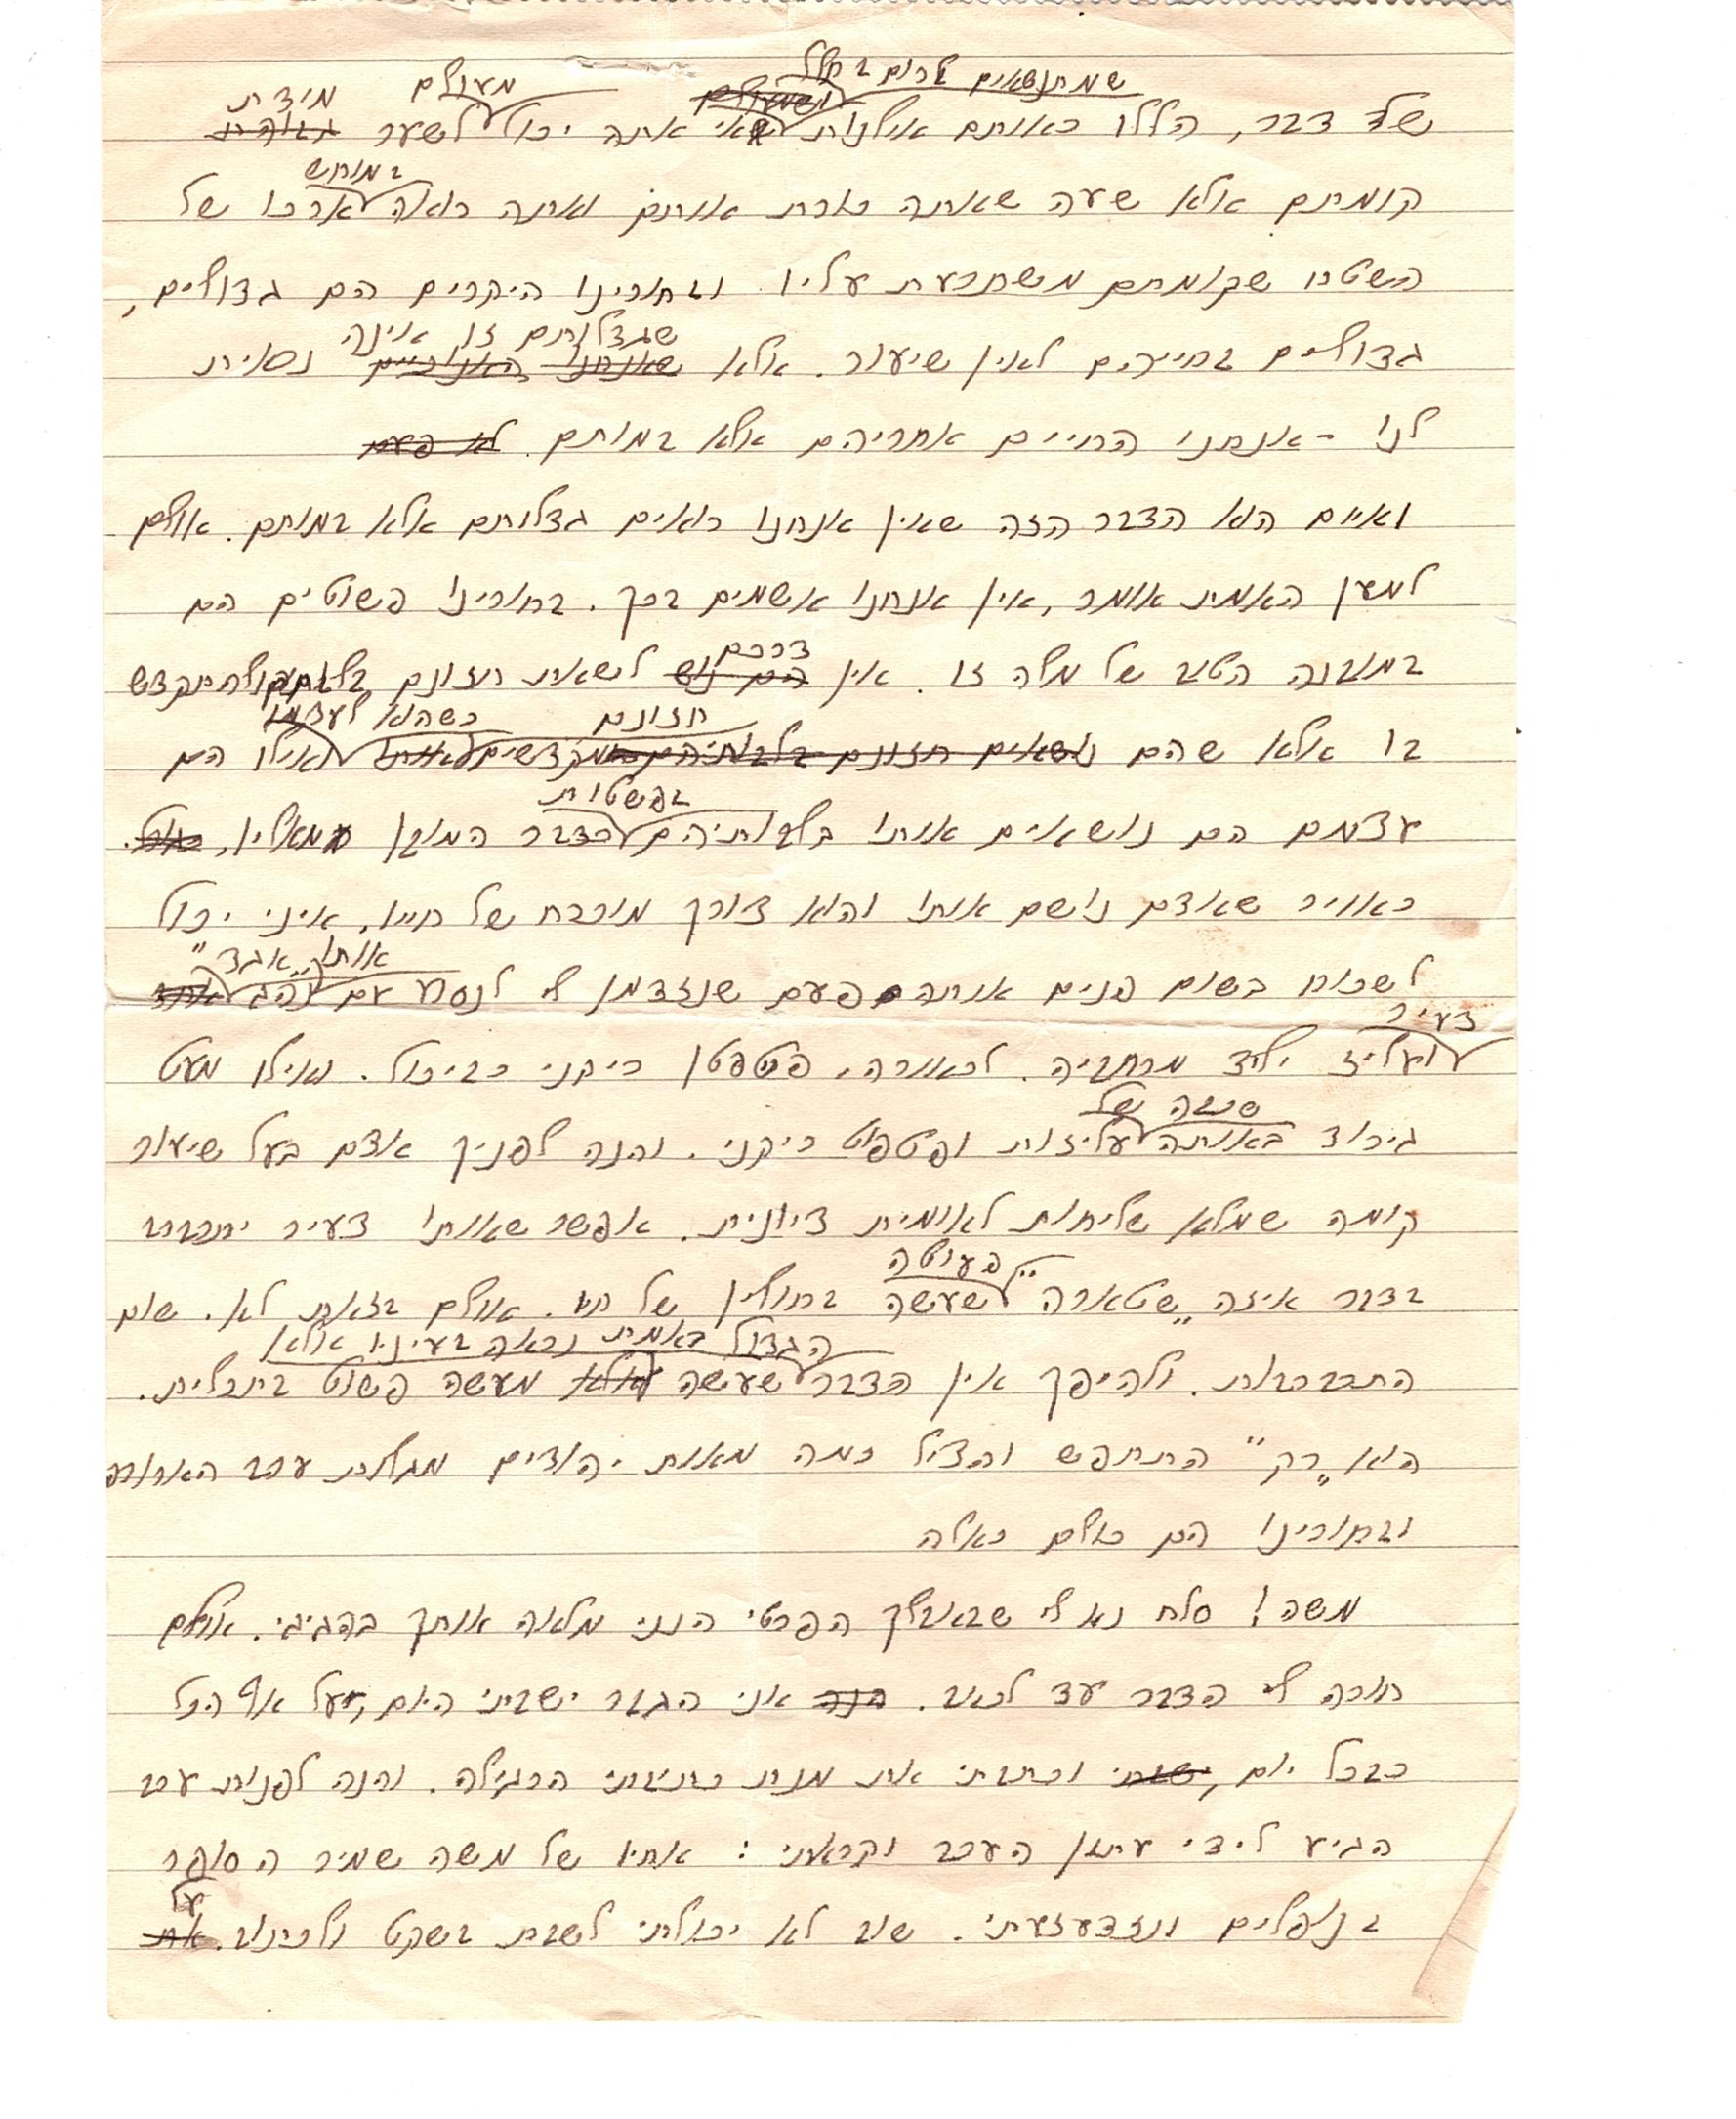 שמתנשאים לרום בחלל
מעולם
מידת
של דבר, הללו כאותם אילנות שאי אתה יכול לשער גבהות
במוחש
קומתם אלא שעה שאתה כורת אותם ואתה רואה ארכו של
השטח שקומתם משתרעת עליו. ובחורינו היקרים הם גדולים,
שגדלותם זו אינה
גדולים בחייהם לאין שיעור. אלא שאנחנו נראית
לנו - אנחנו החיים אחריהם אלא במותם. לא פעם
ואיום הוא הדבר הזה שאין אנחנו רואים גדלותם אלא במותם. אולם
למען האמת אומר, אין אנחנו אשמים בכך. בחורינו פשוטים הם
דרכם
במובנה הטוב של מלה זו. אין לשאת חזונם בלבם ולהתקדש
חזונם כשהוא לעצמו
בו אלא שהם נושאים חזונם בלבותיהם ומקדשים אותו ואילו הם
בפשטות
עצמם הם נושאים אותו בלבותיהם כדבר המובן מאליו,
כאויר שאדם נושם אותו והוא צורך מוכרח של חייו. איני יכול
אותו "אגד"
לשכוח בשום פנים אותה פעם שנזדמן לי לנסוע עם נהג
צעיר
ועליז יליד מרחביה. לכאורה, פטפטן ריקני כביכול. ואילו מעט
סוגה של
גירוד באותה עליזות ופטפוט ריקני. והנה לפניך אדם בעל שיעור
קומה שמלא שליחות לאומית ציונית. אפשר שאותו צעיר יתרברב
פעוטה
בדבר איזה "שטארה" שעשה בחולין של חיו. אולם בזאת לא. שום
הגדול באמת נראה בעיניו אלא
התרברבות. ולהיפך אין הדבר שעשה אלא מעשה פשוט בתכלית.
הוא "רק" התחפש והציל כמה מאות יהודים מגולת ערב הארורה
ובחורינו הם כולם כאלה
משה! סלח נא לי שבאבלך הפרטי הנני מלאה אותך בהגיגי. אולם
חורה לי הדבר עד לכאב. הנה אני הגבר ישבתי היום, על אף הכל
כבכל יום, ישבתי וכתבתי את מנת כתיבתי הרגילה. והנה לפנות ערב
הגיע לידי עתון הערב וקראתי: אחיו של משה שמיר הסופר
על
בנופלים ונזדעזעתי. שוב לא יכולתי לשבת בשקט ולכתוב. את